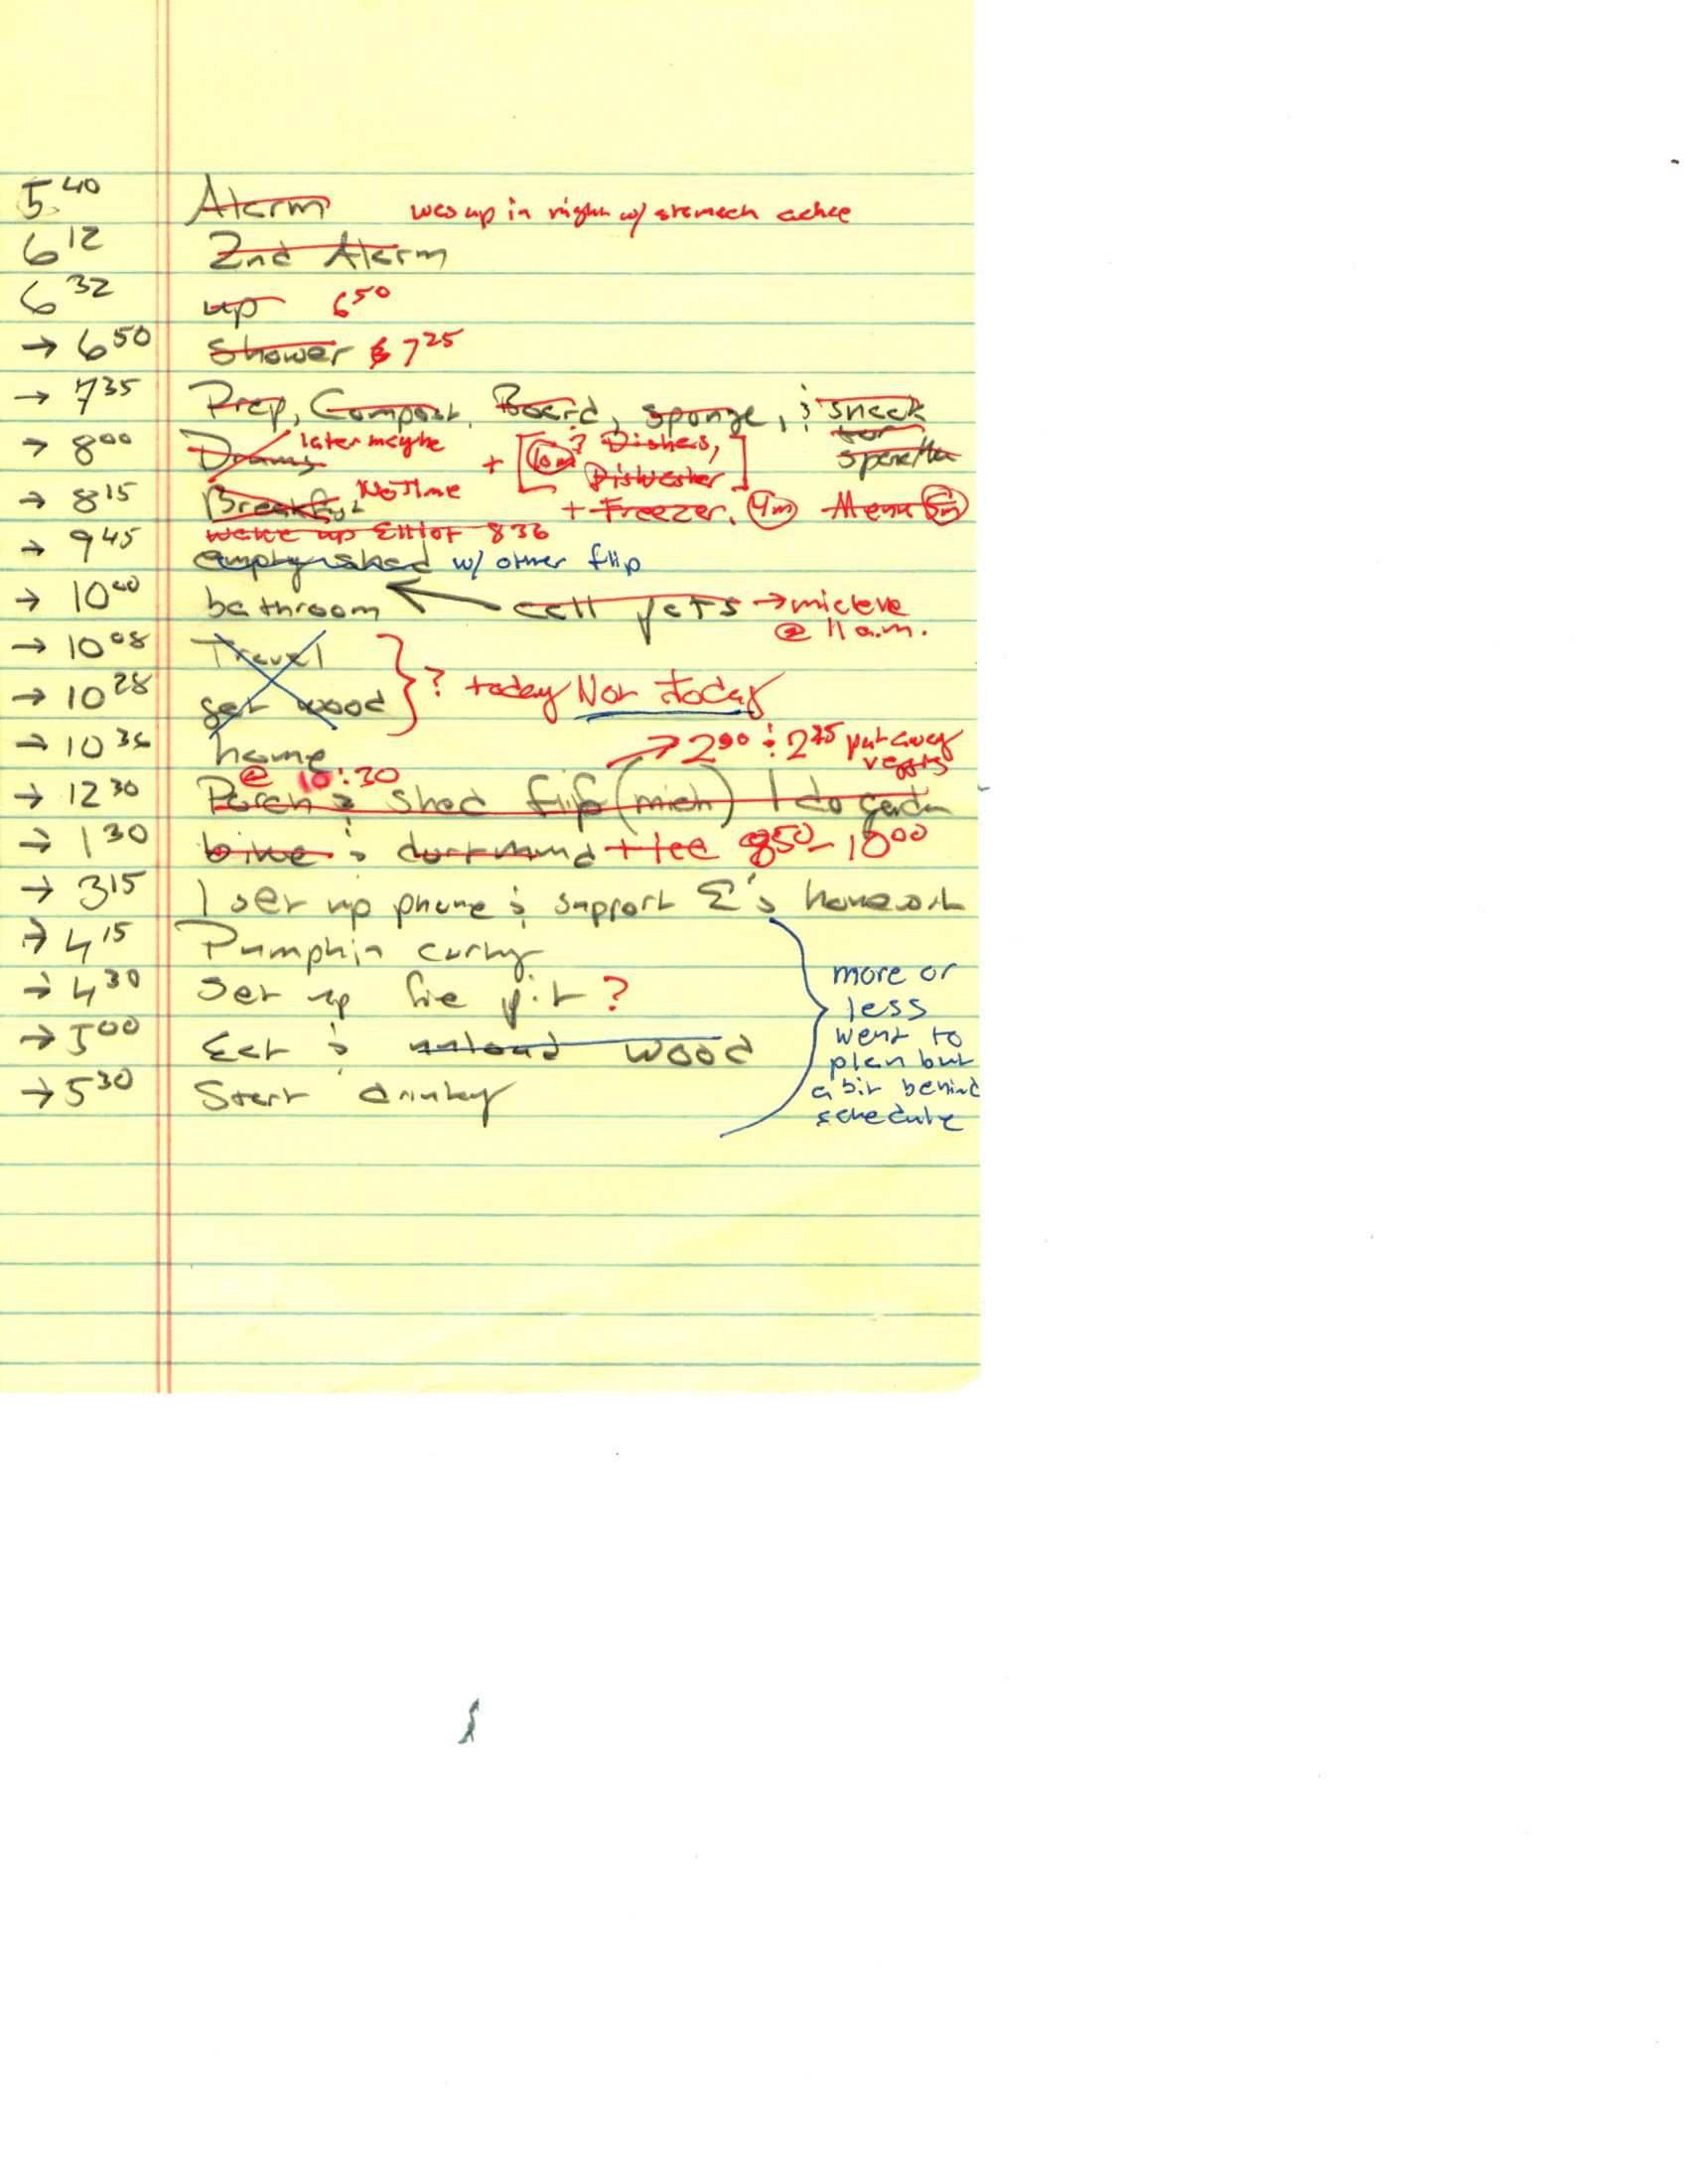 5:40 Alarm was up in night w/ stomach ache
6:12 2nd Alarm
6:32 up 6:50
→ 6:50 Shower 7:25
→ 7:35 Prep, Compost, Board, sponge, & snack
for
→ 8:00 Drums later maybe + [10m? Dishes,
Diswasher]
→ 8:15 Breakfast No Time + Freezer. 4m Menu 5m
wake up Elliot 8 36
→ 9:45 empty shed w/ other flip
→ 10:00 bathroom ← call vets → mickve
@ 11 a.m.
→ 10:08 Travel
→ 10:28 get wood } ? today Not today
→ 10:36 home → 2:00 & 2:25 put away
veggies
@ 10:30
→ 12:30 Porch & shed flip (mich) I do garden
→ 1:30 bike & + 8:50 - 10:00
→ 3:15 I set up phone & support E's homework
→ 4:15 Pumpkin carving
→ 4:30 Set up fire pit ?
→ 5:00 Eat & unload wood
→ 5:30 Start drinking
more or
less
went to
plan but
a bit behind
schedule